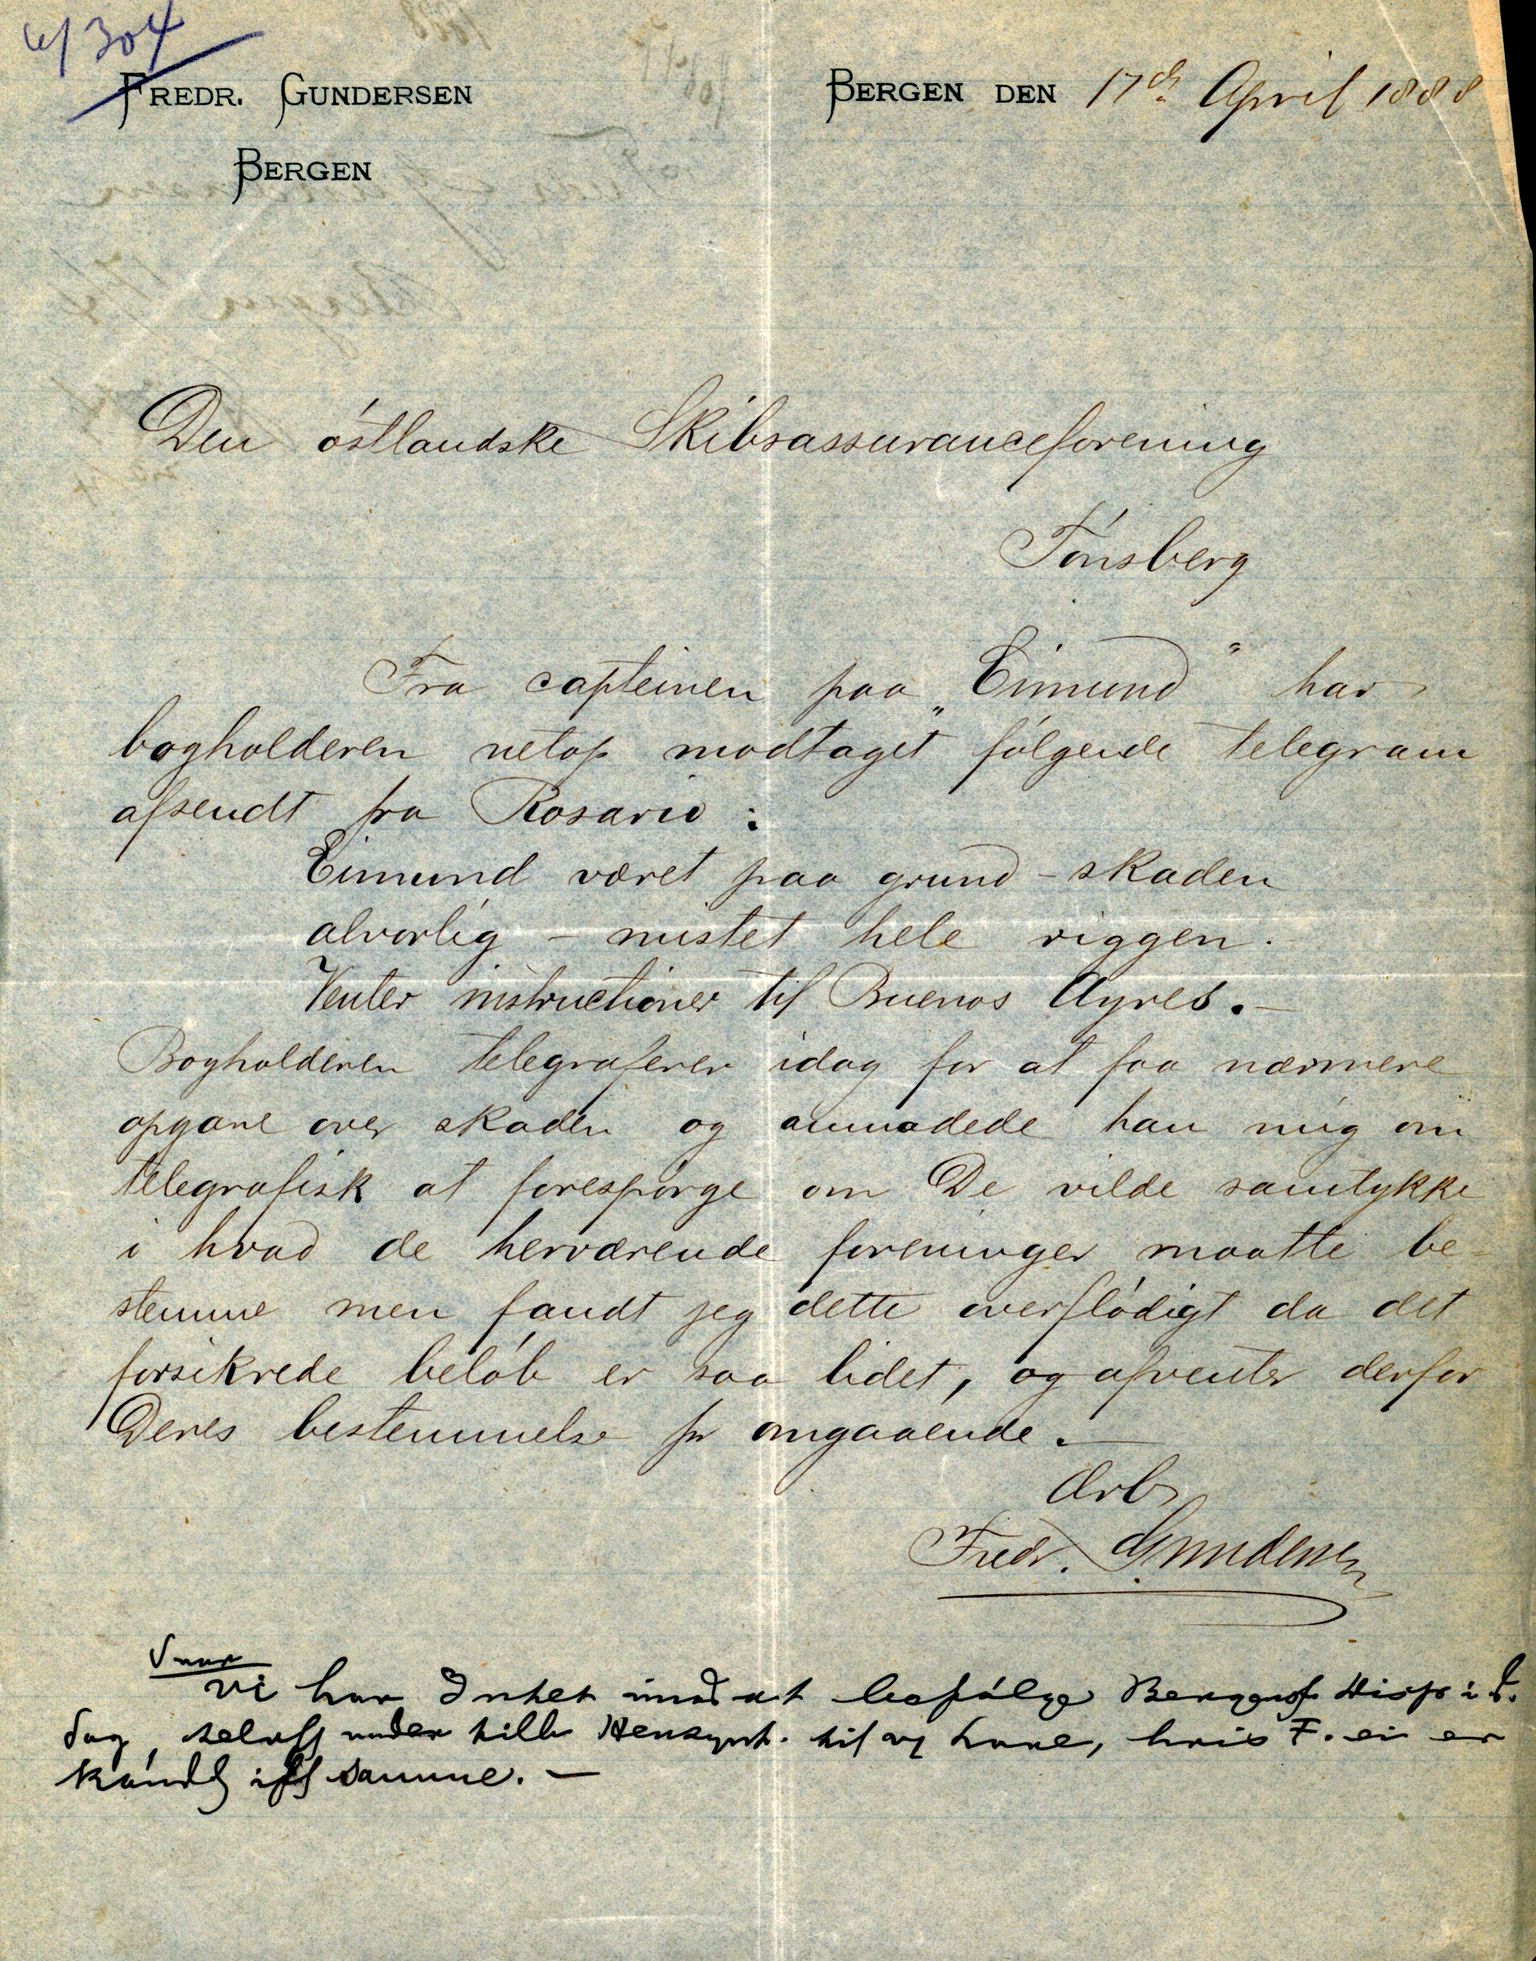 6/304
FREDR. GUNDERSEN
BERGEN
BERGEN DEN 17de April 1888
Den östlandske Skibsassuranceforening
Tönsberg
Fra capteinen paa „Eimund" har
bogholderen netop modtaget fölgende telegram
afsendt fra Rosario :
Eimund været paa grund - skaden
alvorlig - mistet hele riggen.
Venter instructioner til Buenos Ayres. -
Bogholderen telegraferer idag for at faa nærmere
opgave over skaden og anmodede han mig om
telegrafisk at forespörge om De vilde samtykke
i hvad de herværende foreninger maatte be-
stemme men fandt jeg dette overflödigt da det
forsikrede belöb er saa lidet, og afventer derfor
Deres bestemmelse pr omgaaende. -
Ærb
Fredr. Gundersen
Svar
Vi har Intet imod at befölge i d.
Sag, under till til og have, hvis F. ei er
samme. -